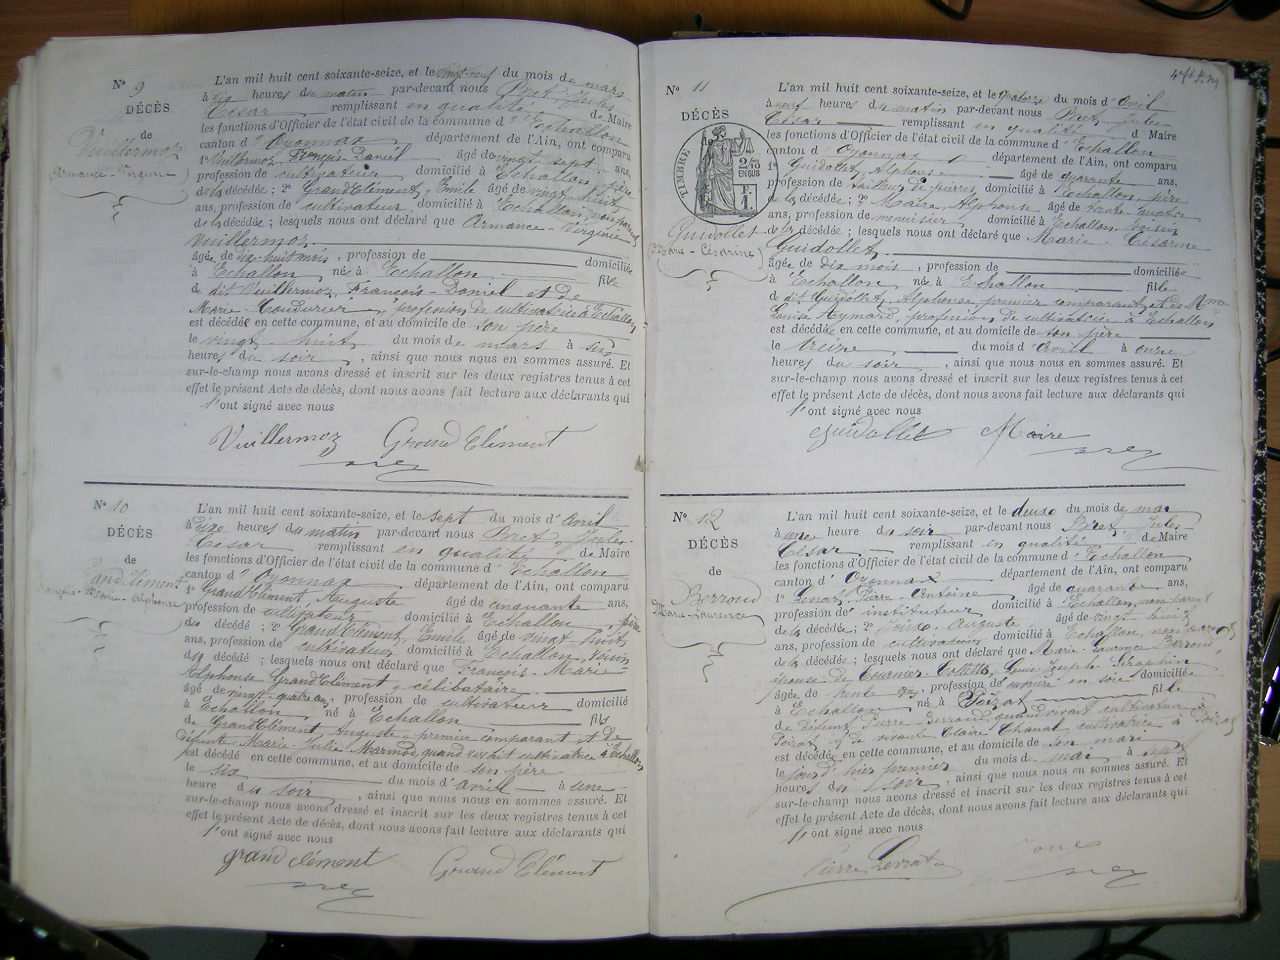 N° 9
DÉCÈS
de
Vuillermoz
Armance-Virginie
L'an mil huit cent soixante-seize, et le vingt-neuf du mois de mars
à dix heures du matin par-devant nous Prez, Jules
César remplissant en qualité de Maire
les fonctions d'Officier de l'état civil de la commune d'Echallon
canton d'Oyonnax département de l'Ain, ont comparu
1° Vuillermoz François Daniel âgé de vingt sept
profession de cultivateur domicilié à Echallon, père
de la décédée ; 2° GrandClément, Emile âgé de vingt huit
ans, profession de cultivateur domicilié à Echallon, non parent
de la décédée ; lesquels nous ont déclaré que Armance-Virginie
Vuillermoz
âgée de dix-huit mois, profession de domiciliée
à Echallon née à Echallon fille
de dit Vuillermoz, François-Daniel et de
Marie, profession de cultivatrice à Echallon
est décédée en cette commune, et au domicile de son père
le vingt-huit du mois de mars à six
heures du soir, ainsi que nous nous en sommes assuré. Et
sur-le-champ nous avons dressé et inscrit sur les deux registres tenus à cet
effet le présent Acte de décès, dont nous avons fait lecture aux déclarants qui
l'ont signé avec nous
Vuillermoz Grand Clément
N° 10
DÉCÈS
de
Grand Clément
François-Marie-Alphonse
L'an mil huit cent soixante-seize, et le sept du mois d'avril
à dixe heures du matin par-devant nous Prez, Jules-
César remplissant en qualité de Maire
les fonctions d'Officier de l'état civil de la commune d'Echallon
canton d'Oyonnax département de l'Ain, ont comparu
1° GrandClément, Auguste âgé de cinquante ans,
profession de cultivateur domicilié à Echallon, père
du décédé ; 2° GrandClément, Emile âgé de vingt huit
ans, profession de cultivateur domicilié à Echallon, voisin
du décédé ; lesquels nous ont déclaré que François-Marie
Alphonse GrandClément, célibataire
âgé de vingt-quatre ans, profession de cultivateur domicilié
à Echallon né à Echallon fils
de GrandClément, Auguste premier comparant et de
défunte Marie Julie Marmod quand vivait cultivatrice à Echallon
est décédé en cette commune, et au domicile de son père
le six du mois d'avril à une
heure du soir, ainsi que nous nous en sommes assuré. Et
sur-le-champ nous avons dressé et inscrit sur les deux registres tenus à cet
effet le présent Acte de décès, dont nous avons fait lecture aux déclarants qui
l'ont signé avec nous
grand clément Grand Clément
N° 11
DÉCÈS
TIMBRE
2/10
EN SUS
F.
1.
Guidollet
Marie-Césarine
L'an mil huit cent soixante-seize, et le quatorze du mois d'avril
à neuf heures du matin par-devant nous Prez, Jules
César remplissant en qualité d Maire
les fonctions d'Officier de l'état civil de la commune d'Echallon
canton d'Oyonnax département de l'Ain, ont comparu
1° Guidollet, Alphonse âgé de quarante ans,
profession de tailleur de pierres, domicilié à Echallon, père
de la décédée ; 2° Maire, Alphonse âgé de trente quatre
ans, profession de menuisier domicilié à Echallon, voisin
de la décédée ; lesquels nous ont déclaré que Marie-Césarine
Guidollet
âgée de dix mois, profession de domiciliée
à Echallon, née à Echallon fille
d dit Guidollet, Alphonse, premier comparant, et de
Louise Aymard, profession de cultivatrice à Echallon
est décédée en cette commune, et au domicile de son père
le treize du mois d'avril à onze
heures du soir, ainsi que nous nous en sommes assuré. Et
sur-le-champ nous avons dressé et inscrit sur les deux registres tenus à cet
effet le présent Acte de décès, dont nous avons fait lecture aux déclarants qui
l'ont signé avec nous
Guidollet Maire
N° 12
DÉCÈS
de
Berroud
Marie-Laurence
L'an mil huit cent soixante-seize, et le deux du mois de mai
à une heure du soir par-devant nous Prez, Jules
César remplissant en qualité de Maire
les fonctions d'Officier de l'état civil de la commune d'Echallon
canton d'Oyonnax département de l'Ain, ont comparu
1° Levrat Pierre-Antoine âgé de quarante ans,
profession d'instituteur domicilié à Echallon, non parent
de la décédée ; 2° Auguste âgé de vingt huit
ans, profession de cultivateur domicilié à Echallon, non parent
de la décédée ; lesquels nous ont déclaré que Marie-Laurence Berroud,
épouse de Tournier-Colletta, Louis Joseph Séraphin
âgée de trente ans, profession d'ouvrière en soie domiciliée
à Echallon née à Poizat fille
de défunt Pierre Berroud quand vivait cultivateur à
Poizat, et de vivante Claire Chanal cultivatrice à Poizat
est décédée en cette commune, et au domicile de son mari
le jour d'hier premier du mois de mai à sept
heures du soir, ainsi que nous nous en sommes assuré. Et
sur-le-champ nous avons dressé et inscrit sur les deux registres tenus à cet
effet le présent Acte de décès, dont nous avons fait lecture aux déclarants qui
l'ont signé avec nous
Pierre Levrat